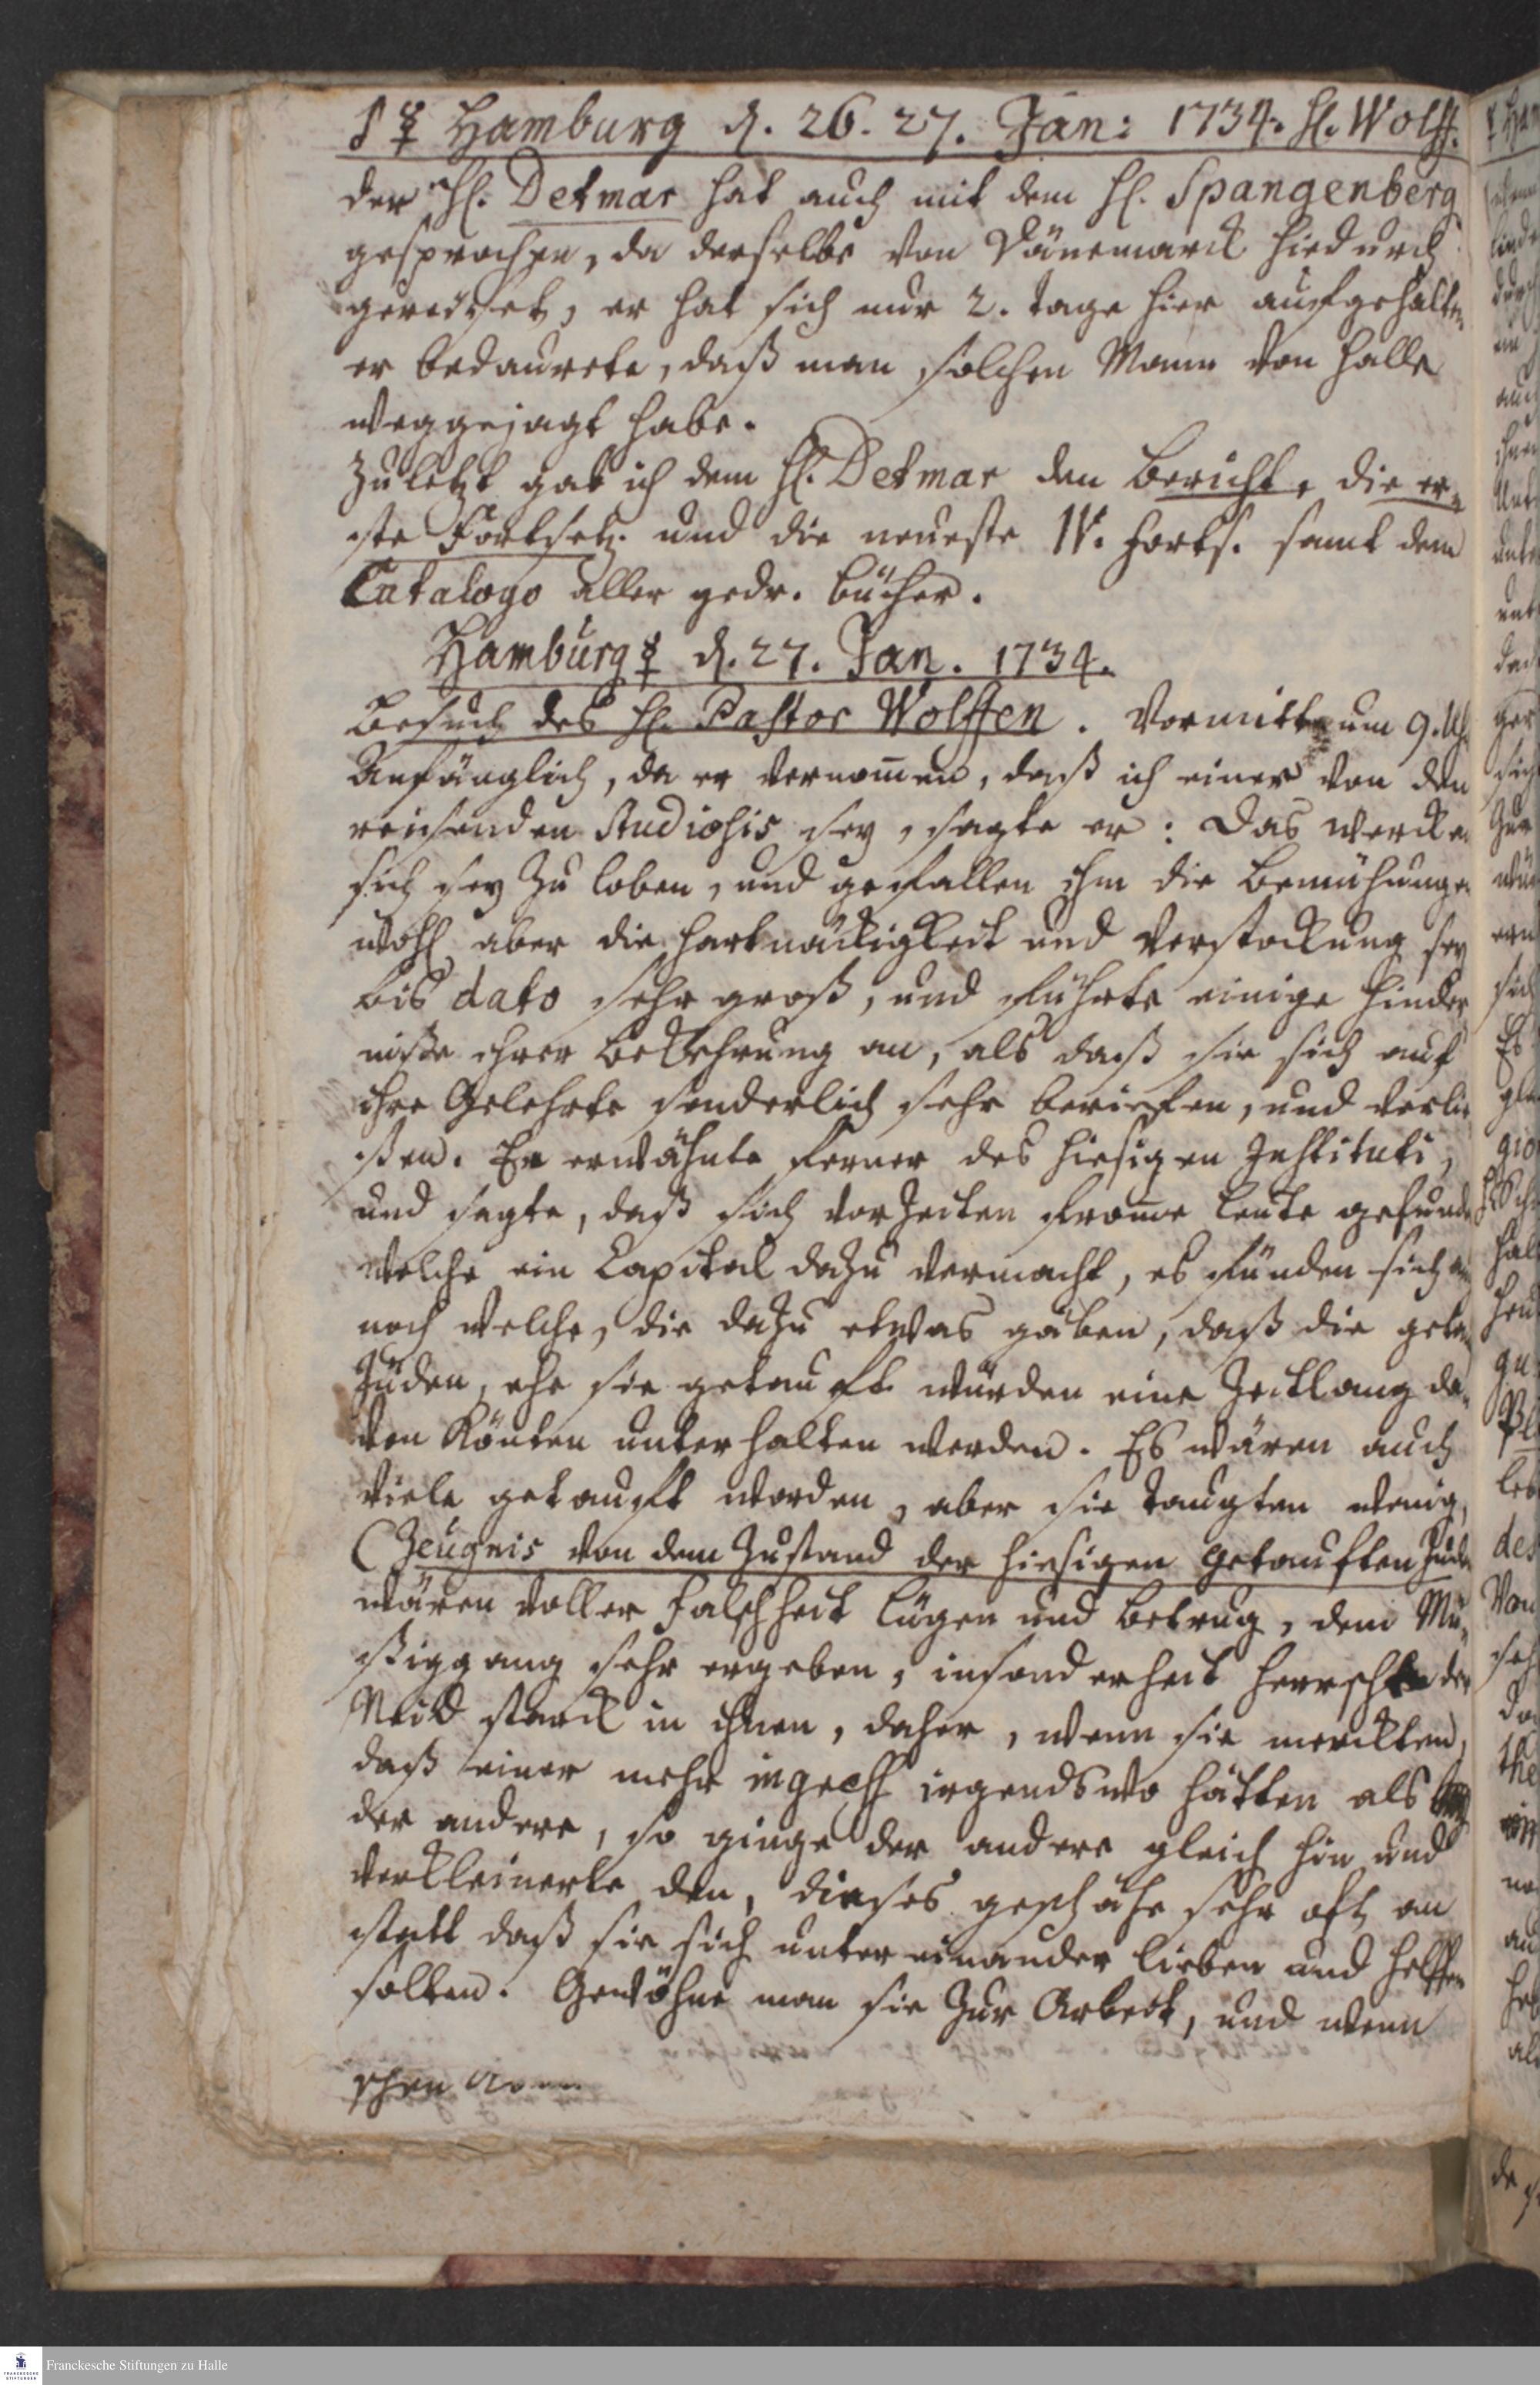 ♂ ☿ Hamburg d. 26. 27. Jan: 1734. H. Wolff.
der H. Detmar hat auch mit dem H. Spangenberg
gesprochen, da derselbe von Dänemarck hiedurch
gereiset, er hat sich nur 2. tage hier aufgehalten
er bedaurete, daß man solchen Mann von Halle
weggejagt habe.
Zuletzt gab ich dem H. Detmar den Bericht, die er-
ste Fortsetz. und die neueste IV. Forts. samt dem
Catalogo aller gedr. Bücher.
Hamburg ☿ d. 27. Jan. 1734.
Besuch des H. Pastor Wolffen. Vormitt um 9. Uh.
Anfänglich, da er vernom̄en, daß ich einer von den
reisenden Studiosis sey, sagte er: Das Werck an
sich sey zu loben, und gefallen ihm die Bemühungen
wohl aber die Hartnäckigkeit und Verstockung sey
bis dato sehr groß, und führte einige Hinder
niße ihrer Bekehrung an, als daß sie sich auf
ihre Gelehrte sonderlich sehr beriefen, und verlie
ßen. Er erwähnte ferner des hiesigen Instituti,
und sagte, daß sich vor Zeiten from̄e Leute gefunden
welche ein Capital dazu vermacht, es fünden sich
noch welche, die dazu etwas gäben, daß die
Juden, ehe sie getaufft würden eine Zeitlang da-
von könten unterhalten werden. Es wären auch
viele getaufft worden, aber sie taugten wenig,
(Zeugnis von dem Zustand der hiesigen getaufften Juden
wären voller Falschheit Lügen und Betrug, dem Mü-
ßiggang sehr ergeben, insonderheit herrschte der
Neid starck in ihnen, daher, wenn sie merckten,
daß einer mehr ingress irgendswo hätten als
der andere, so ginge der andere gleich hin und
verkleinerte den, dieses geschähe sehr oft an
statt daß sie sich untereinander lieben und helffen
solten. Gewöhne man sie zur Arbeit, und wenn
schen
Franckesche Stiftungen zu Halle